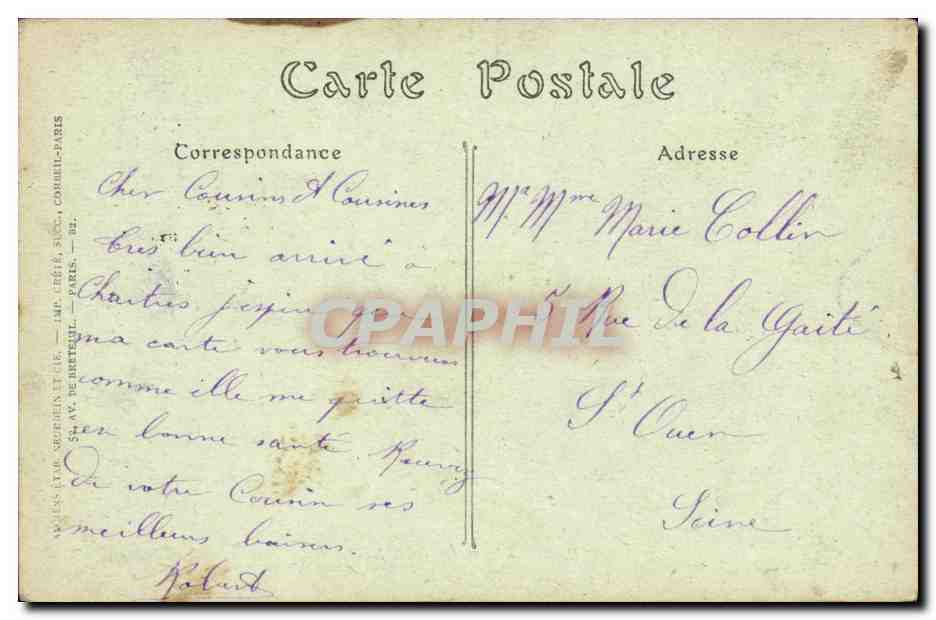 Carte Postale
Correspondance
Cher Cousins et Cousines
tres bien arrivé a
Chartres j'espère que
ma carte vous trouveras
comme ille me quitte
en bonne santé. Recevez
de votre Cousin ses
meilleurs baisers.
Robert
Adresse
Mr Mme Marie Collin
5 Rue de la Gaité
St Ouen
Seine
ANCIENS ETAB. NEURDEIN ET CIE. — IMP. CRÉTÉ, SUCC., CORBEIL-PARIS
52, AV. DE BRETEUIL. — PARIS. — B2.
CPAPHIL.COM